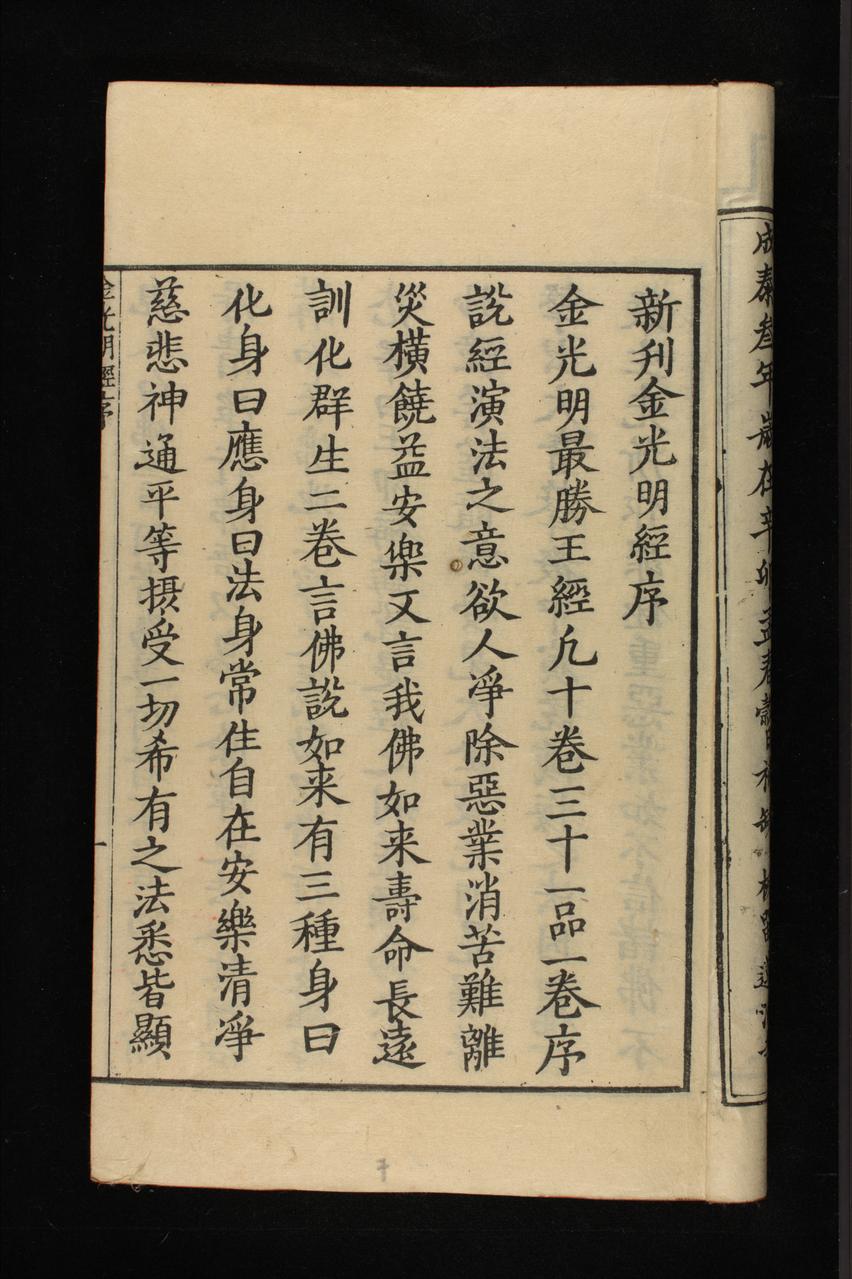 成泰叁年歲在辛卯孟春
新刋金光明經序
金光明最勝王經凢十卷三十一品一卷序
說經演法之意欲人淨除惡業消苦難離
災横饒益安樂又言我佛如来壽命長遠
訓化群生二卷言佛說如来有三種身曰
化身曰應身曰法身常住自在安樂清淨
慈悲神通平等摄受一切希有之法悉皆顯
金光明經序
一